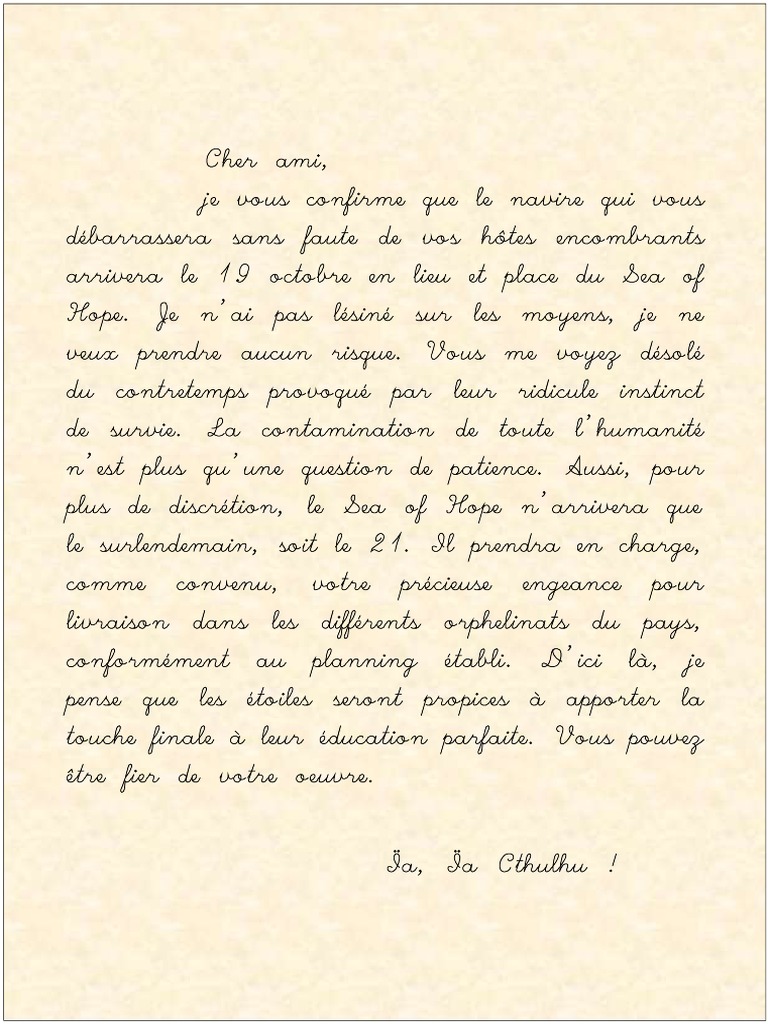 Cher ami,
je vous confirme que le navire qui vous
débarrassera sans faute de vos hôtes encombrants
arrivera le 19 octobre en lieu et place du Sea of
Hope. Je n'ai pas lésiné sur les moyens, je ne
veux prendre aucun risque. Vous me voyez désolé
du contretemps provoqué par leur ridicule instinct
de survie. La contamination de toute l'humanité
n'est plus qu'une question de patience. Aussi, pour
plus de discrétion, le Sea of Hope n'arrivera que
le surlendemain, soit le 21. Il prendra en charge,
comme convenu, votre précieuse engeance pour
livraison dans les différents orphelinats du pays,
conformément au planning établi. D'ici là, je
pense que les étoiles seront propices à apporter la
touche finale à leur éducation parfaite. Vous pouvez
être fier de votre oeuvre.
Ïa, Ïa Cthulhu !